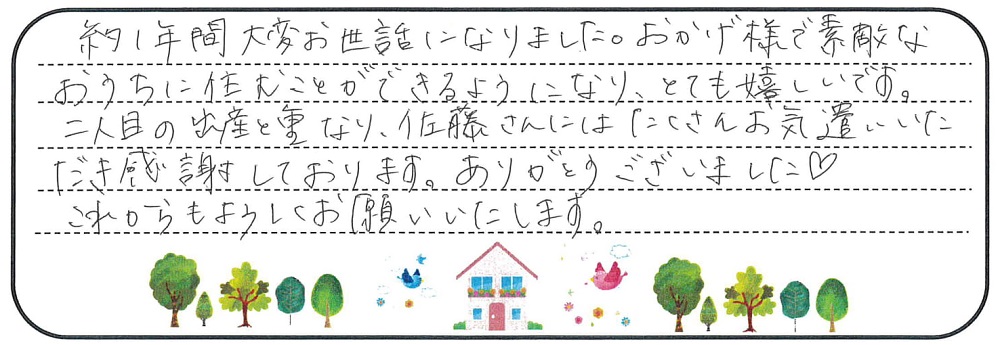 約1年間大変お世話になりました。おかげ様で素敵な
おうちに住むことができるようになり、とても嬉しいです。
二人目の出産と重なり、佐藤さんにはたくさんお気遣いいた
だき感謝しております。ありがとうございました♡
これからもよろしくお願いいたします。